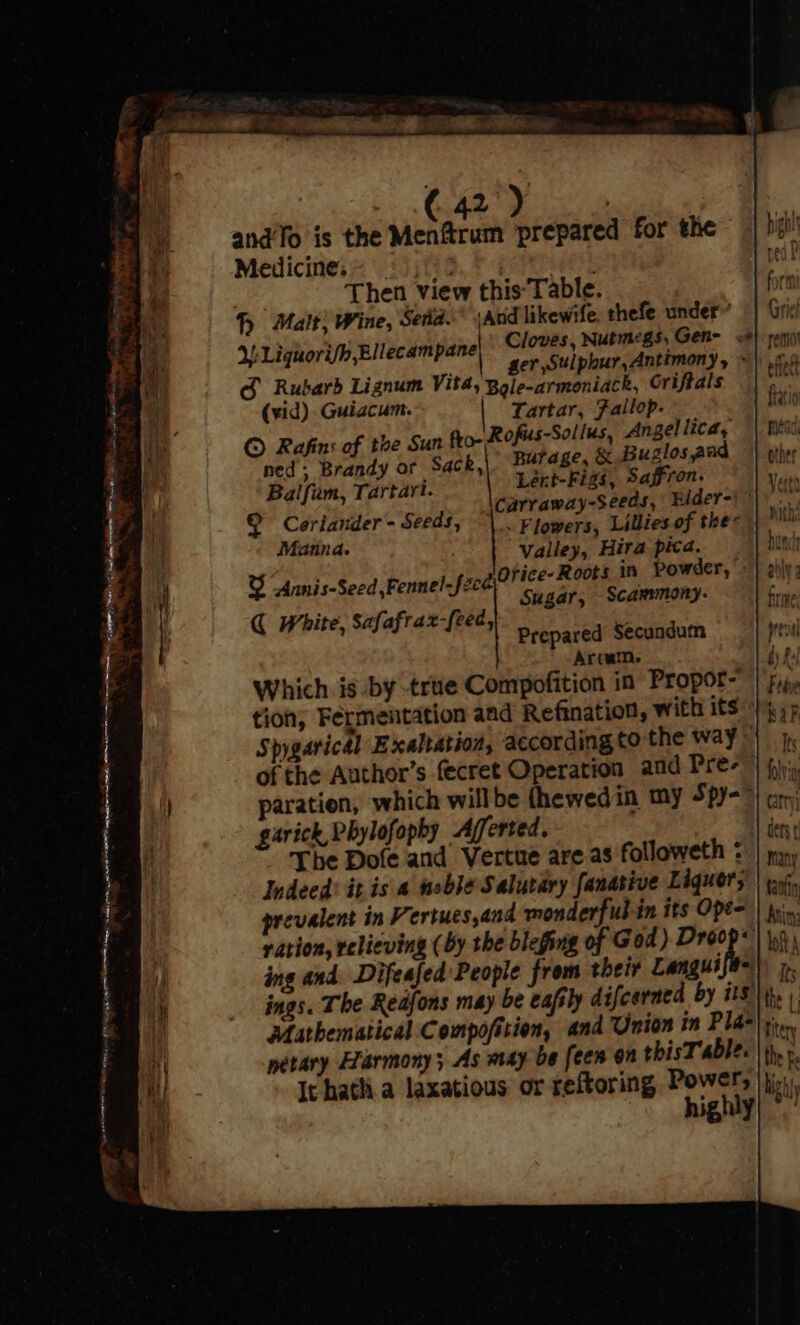 ( 42 )
and ſo is the Menſtrum prepared for the
Medicine.
Then view this Table.
♄ Malt, Wine, Sena. And likewiſe theſe under
♃ Liquoriſh, Ellecampane Cloves, Nutmegs, Gen-
ger, Sulphur, Antimony,
♂ Rubarb Lignum Vitæ, Bole-armoniack, Criſtals
(vid) Guiacum. Tartar, Jallop.
☉ Raſins of the Sun ſto- Roſus-Sollus, Angellica,
ned; Brandy or Sack, Burage, & Buglos, and
Balſum, Tartari. Lent-Figs, Saffron.
♀ Coriander - Seeds, Carraway-Seeds, Elder-
Manna. Flowers, Lillies of the
Valley, Hira pica.
☿ Annis-Seed, Fennel-ſeed Orice-Roots in Powder,
Sugar, Scammony.
☾ White, Saſafrax-ſeed, Prepared Secundum
Artem.
Which is by true Compoſition in Propor-
tion, Fermentation and Reſination, with its
Spygarical Exaltation, according to the way
of the Author's ſecret Operation and Pre-
paration, which will be ſhewed in my Spy-
garick Phyloſophy Aſſerted.
The Doſe and Vertue are as followeth :
Indeed it is a noble Salutary ſanative Liquor,
prevalent in Vertues, and wonderful in its Ope-
ration, relieving (by the bleſſing of God) Droop-
ing and Diſeaſed People from their Languiſh-
ings. The Reaſons may be eaſily diſcerned by its
Mathematical Compoſition, and Union in Pla-
netary Harmony; As may be ſeen on this Table.
It hath a laxatious or reſtoring Power,
highly